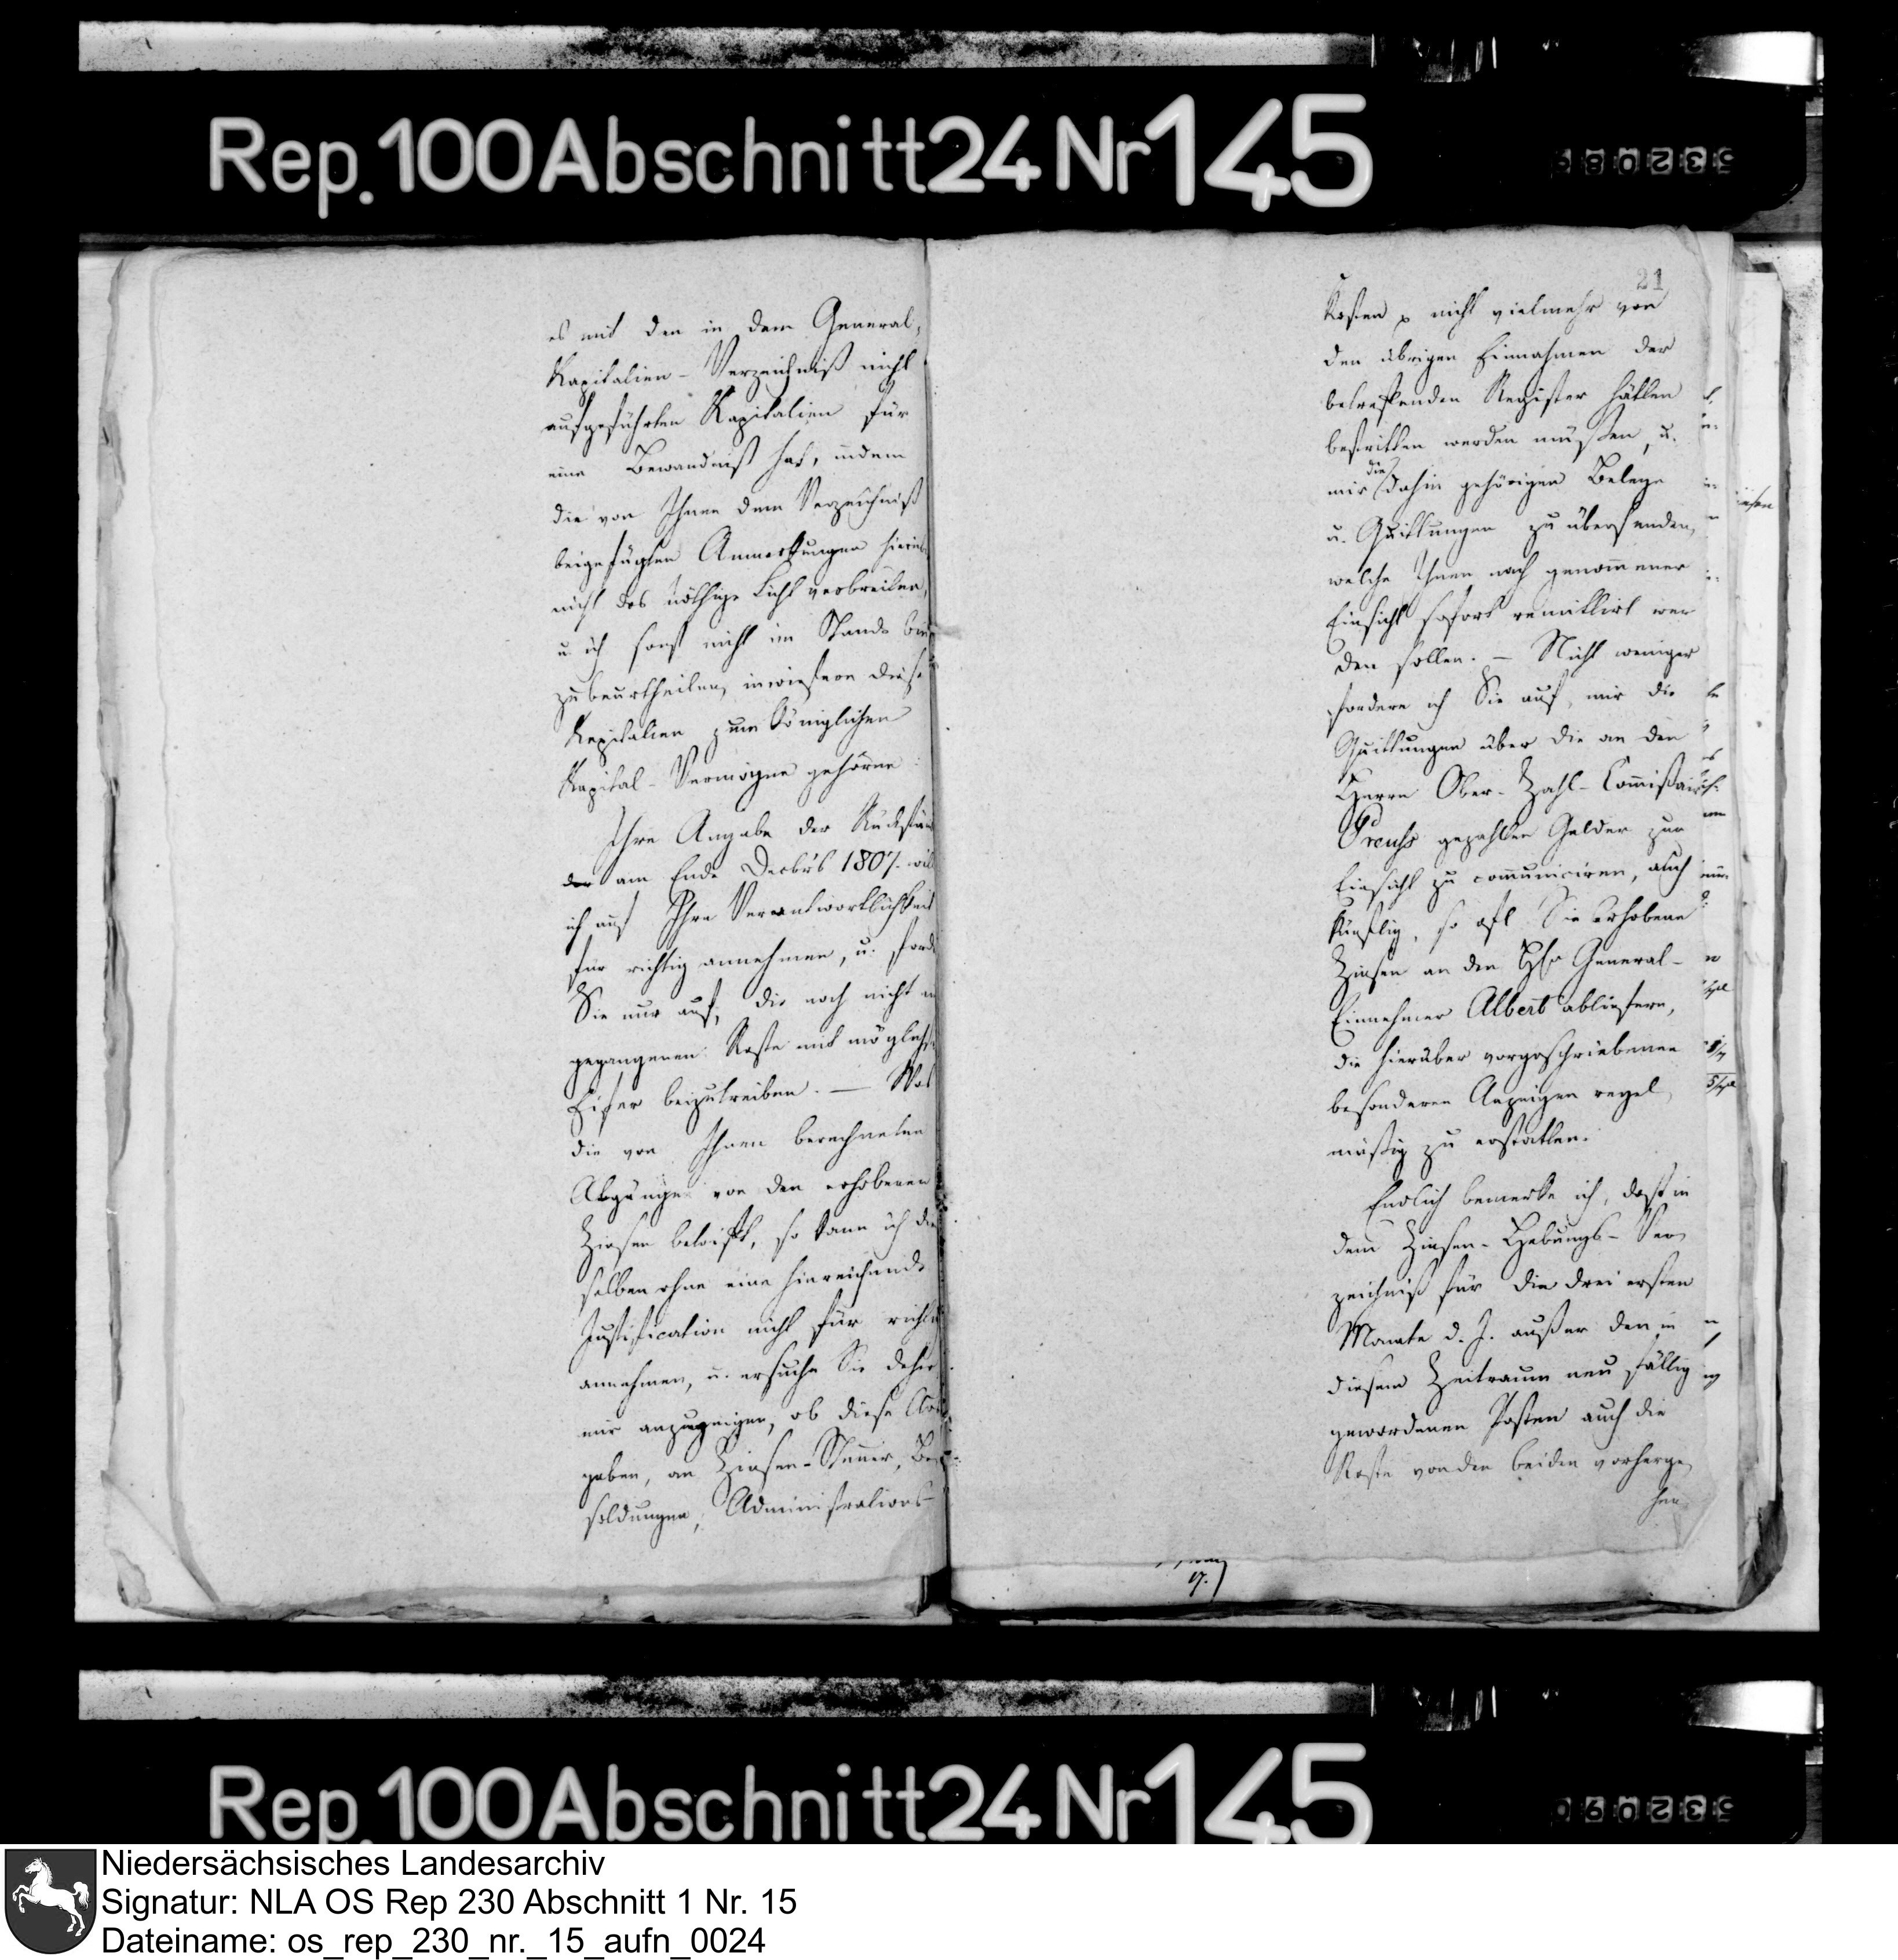 Rep. 100 Abschnitt 24 Nr 145
532089
es mit den in dem General-
Kapitalien-Verzeichniß nicht
aufgeführten Kapitalien für
eine Bewandniß hat, indem
die von Ihnen dem Verzeichniß
beigefügten Anmerkungen hierin
nicht das nöthige Licht verbreiten,
u. ich sonst nicht im Stande bin
zu beurtheilen, inwiefern diese
Kapitalien zum Königlichen
Kapital-Vermögen gehören.
Ihre Angabe der Rückstän
der am Ende Decbrs 1807. will
ich auf Ihre Verantwortlichkeit
für richtig annehmen, u. fordre
Sie nur auf, die noch nicht
gegangenen Reste mit möglichst
Eifer beizutreiben. — Was
die von Ihnen berechneten
Abgänge von den erhobenen
Zinsen betrifft, so kann ich die
selben ohne eine hinreichende
Justification nicht für richtig
annehmen, u. ersuche Sie daher
mir anzuzeigen, ob diese Aus
gaben, an Zinsen-Steuer, Be
soldungen, Administrations-
21
Kosten p nicht vielmehr von
den übrigen Einnahmen der
betreffenden Register hätten
bestritten werden müßen, u.
mir die dahin gehörigen Belege
u. Quittungen zu übersenden,
welche Ihnen nach genommener
Einsicht sofort remittirt wer
den sollen. — Nicht weniger
fordere ich Sie auf, mir die
Quittungen über die an den
Herrn Ober-Zahl-Commißair
Preuß gezahlten Gelder zur
Einsicht zu communiciren, auch
künftig, so oft Sie erhobene
Zinsen an den Hrn General-
Einnehmer Albert abliefern,
die hierüber vorgeschriebenen
besonderen Anzeigen regel
mäßig zu erstatten.
Endlich bemerke ich, daß in
dem Zinsen-Hebungs-Ver
zeichniß für die drei ersten
Monate d. J. außer den in
diesem Zeitraum neu fällig
gewordenen Posten auch die
Reste von den beiden vorherge
hen
Rep. 100 Abschnitt 24 Nr 145
532090
Niedersächsisches Landesarchiv
Signatur: NLA OS Rep 230 Abschnitt 1 Nr. 15
Dateiname: os_rep_230_nr._15_aufn_0024